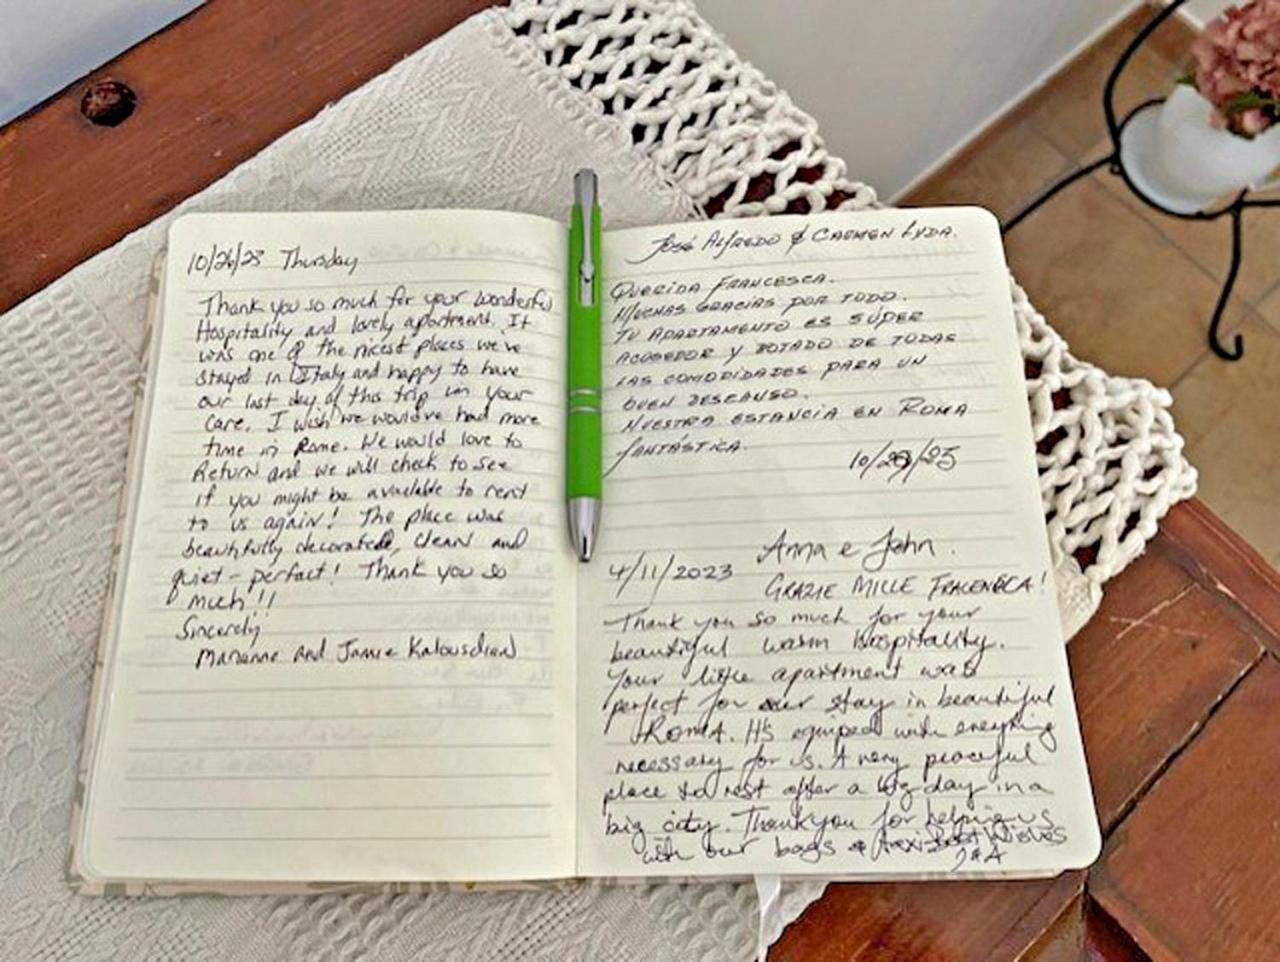 10/26/23 Thursday
Thank you so much for your wonderful
Hospitality and lovely apartment. It
was one of the nicest places we've
stayed in Italy and happy to have
our last day of this trip in your
care. I wish we would've had more
time in Rome. We would love to
Return and we will check to see
if you might be available to rent
to us again! The place was
beautifully decorated, clean and
quiet - perfect! Thank you so
much!!
Sincerely
Marianne and Jamie Kalousdian
José Alfredo & Carmen Lyda.
Querida Francesca.
Muchas gracias por todo.
Tu apartamento es súper
acogedor y dotado de todas
las comodidades para un
buen descanso.
Nuestra estancia en Roma
fantástica.
10/29/23
Anna e John.
4/11/2023
GRAZIE MILLE
Thank you so much for your
beautiful warm hospitality.
Your little apartment was
perfect for our stay in beautiful
Roma. It's equiped with everything
necessary for us. A very peaceful
place to rest after a big day in a
big city. Thank you for helping us
with our bags & taxi. Best Wishes
J & A